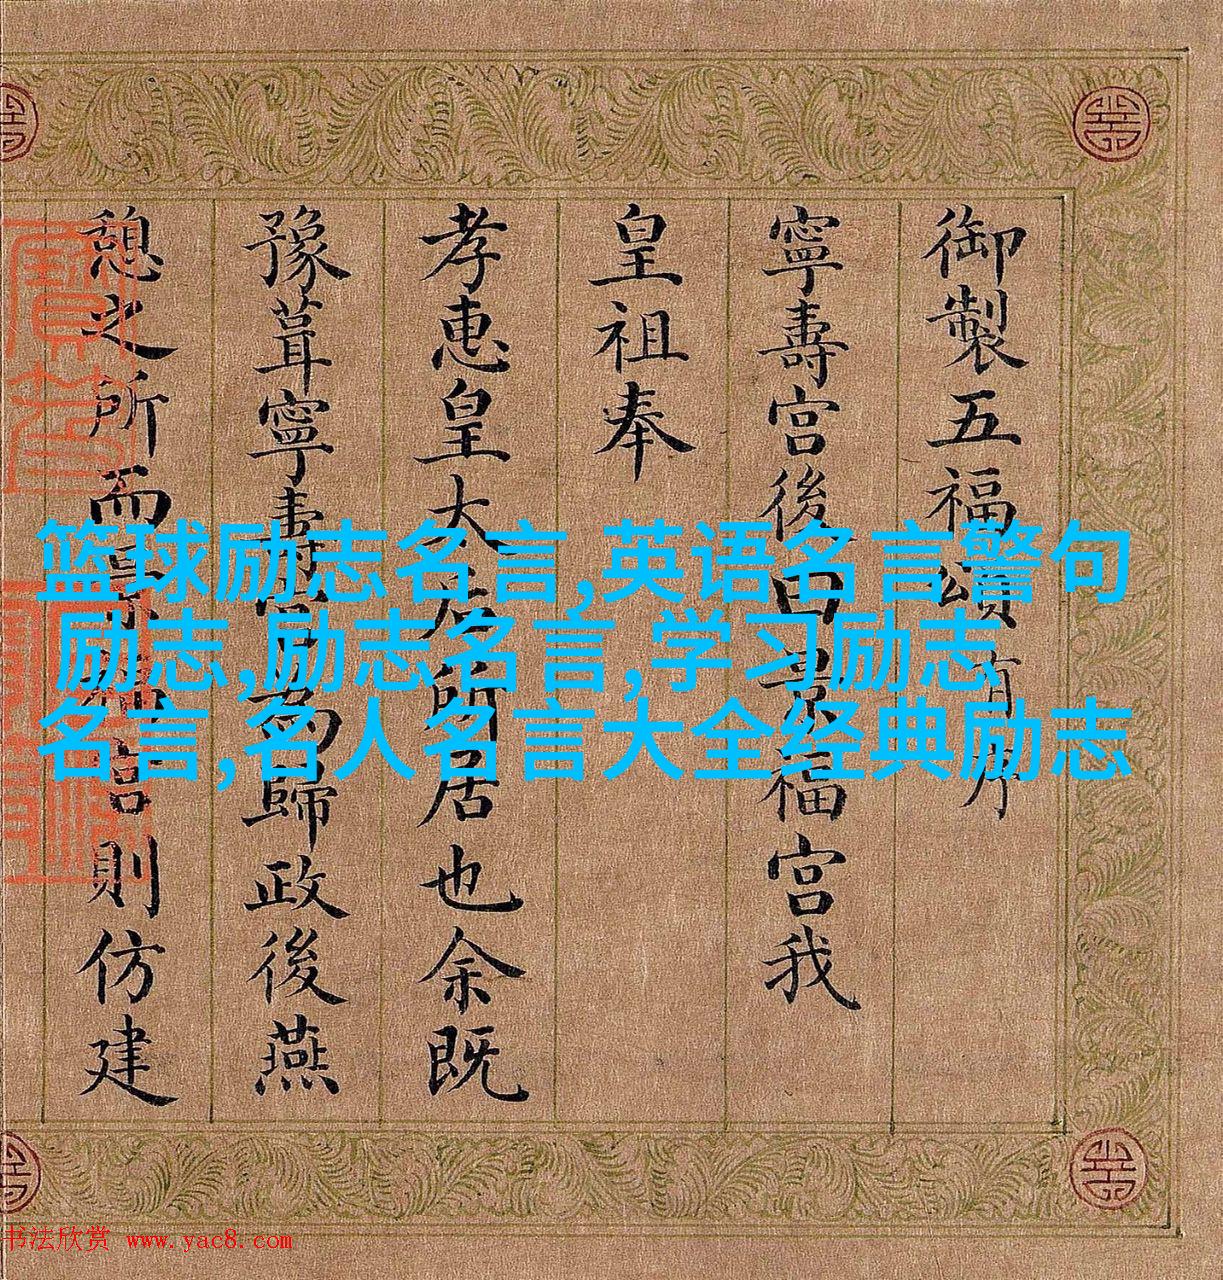 御製五福頌有序
寧壽宮後曰景福宮我
皇祖奉
孝惠皇太后所居也余既
豫葺寧壽宮為歸政後燕
憩之所而景福宮則仿建
篮球励志名言,英语名言警句
励志,励志名言,学习励志
名言,名人名言大全经典励志
书法欣赏 www.yac8.com